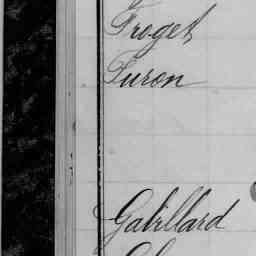 Froget
Suron
Gabillard